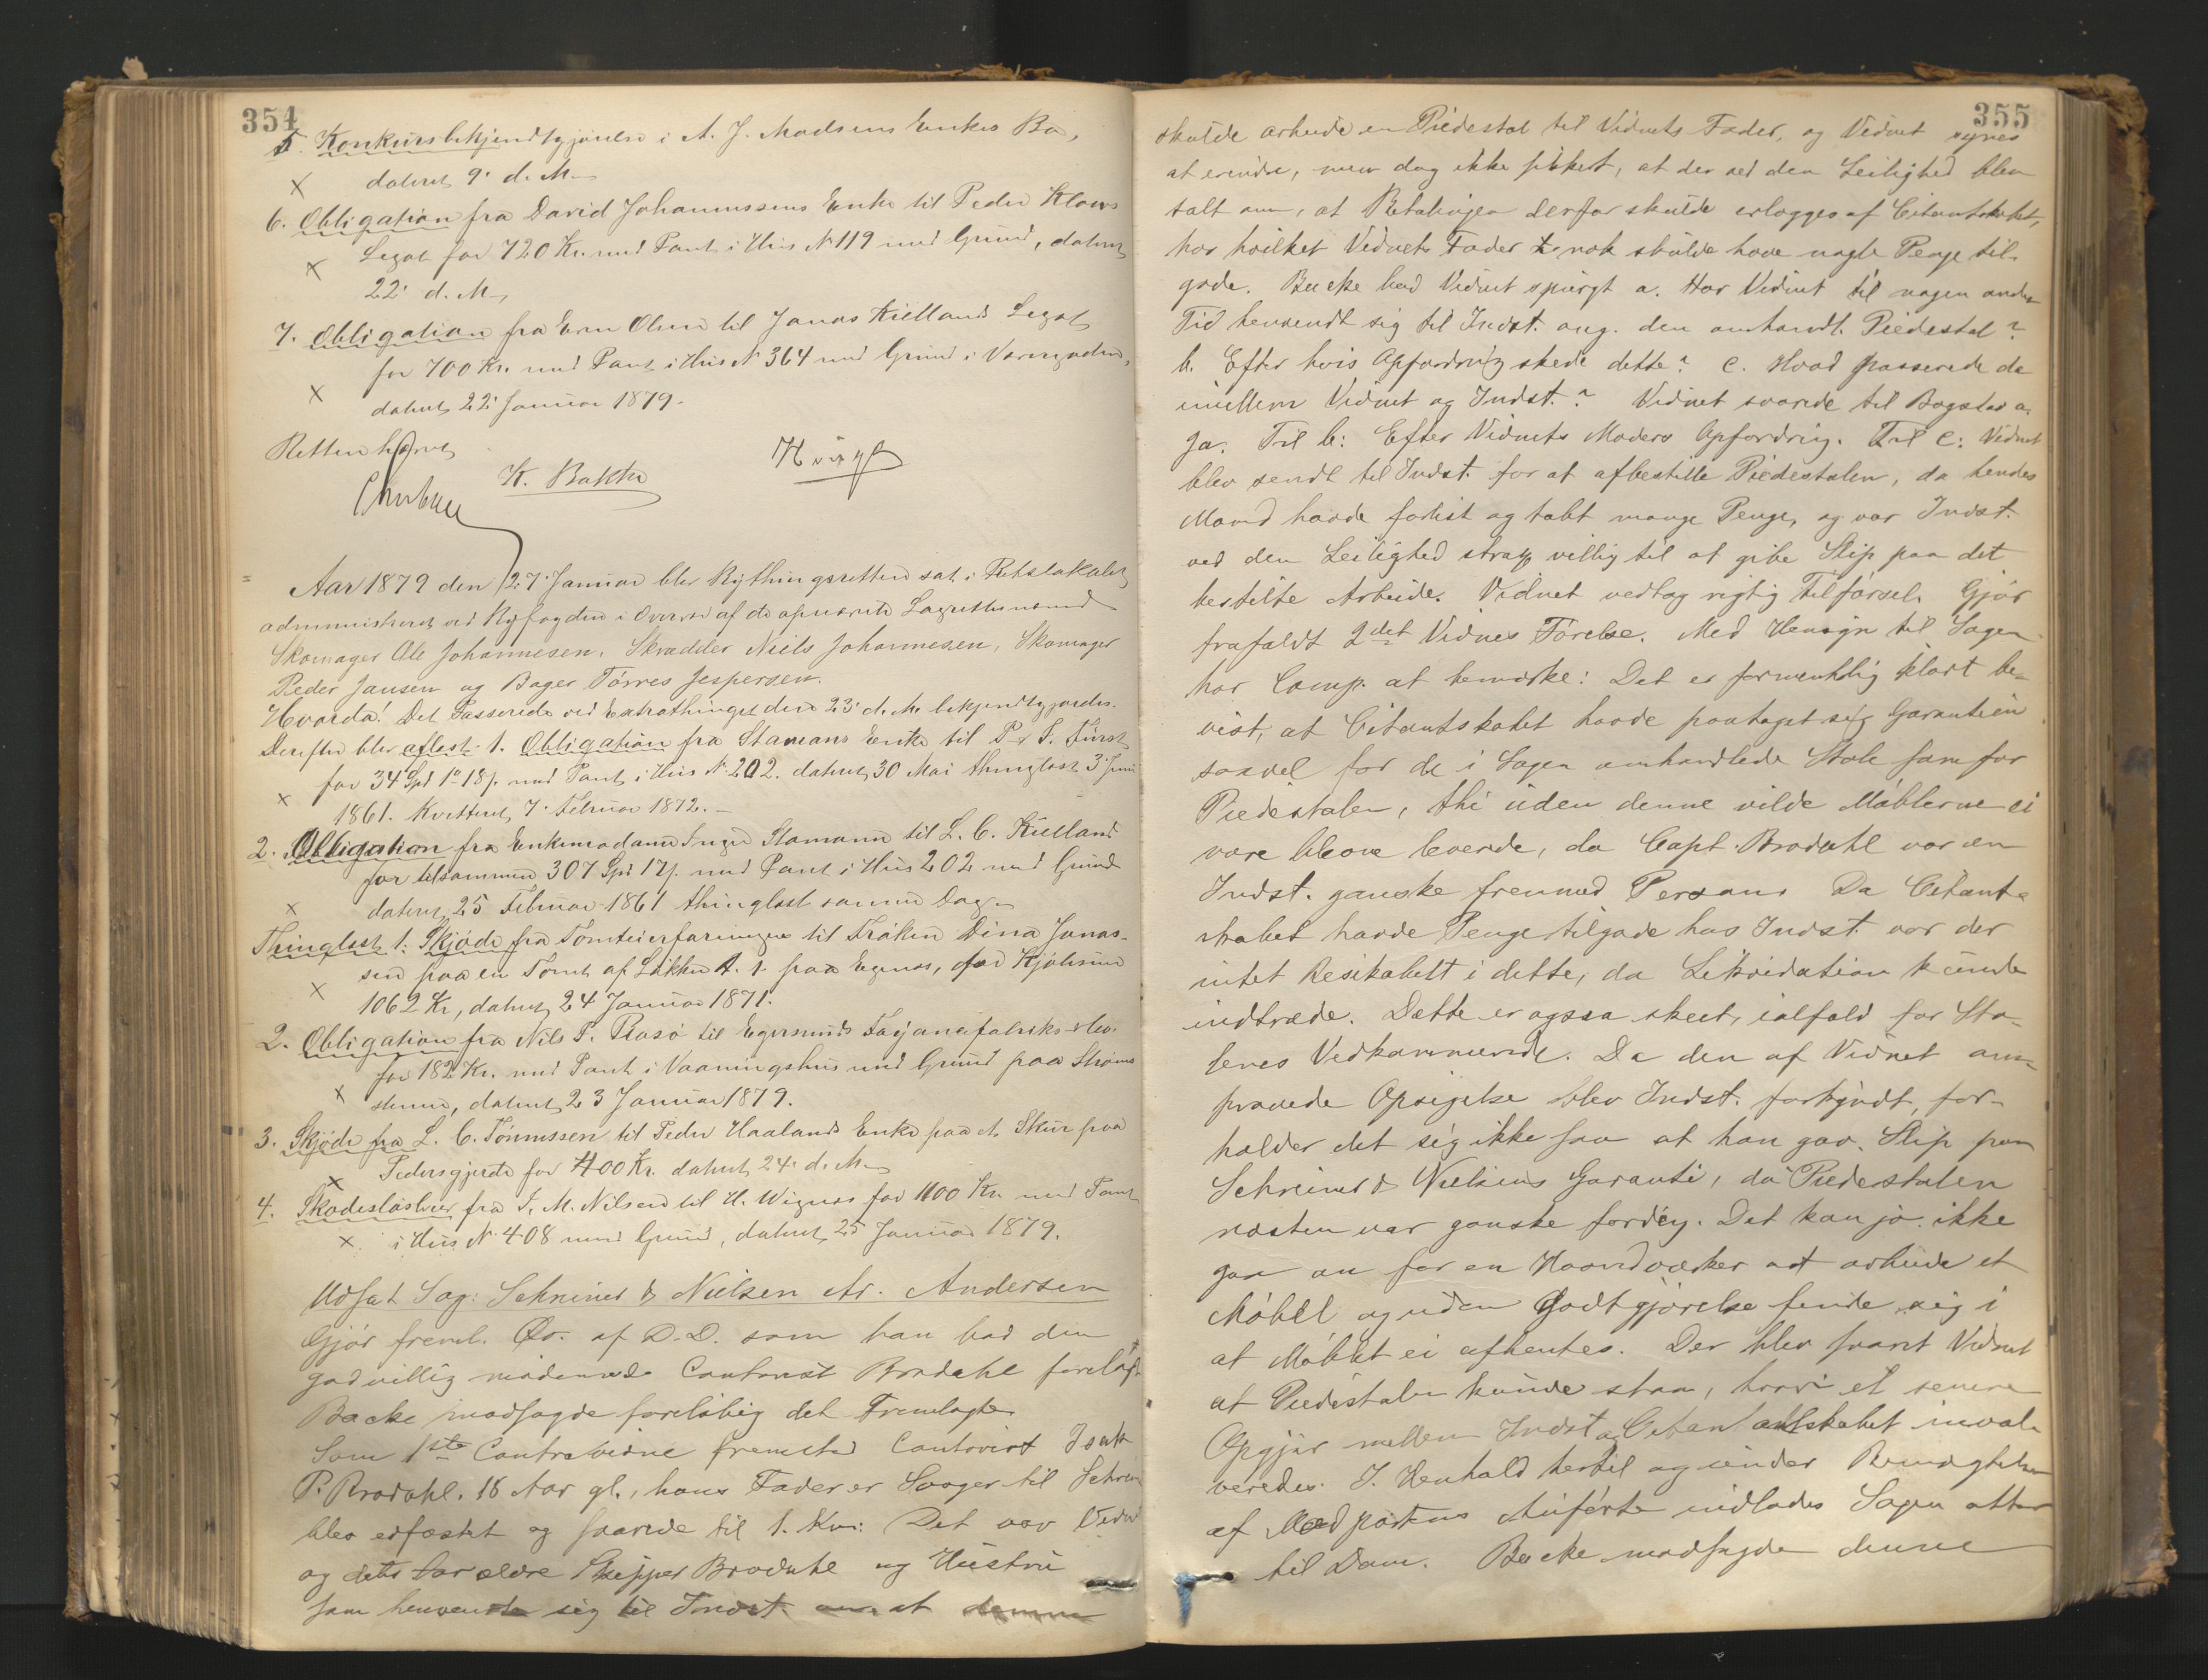 354
5. Konkursbekjendtgjörelse i A. J. Madsens Enkes Bo,
X dateret 9' d. M.
6. Obligation fra David Johannessens Enke til Peder Klows
Legat for 720 Kr. med Pant i Hus N 119 med Grund, dateret
X 22' d. M.
7. Obligation fra Even Olsen til Jonas Kiellands Legat
for 700 Kr. med Pant i Hus N 364 med Grund i
X dateret 22' Januar 1879.
Retten hævet
K. Bakke
Aar 1879 den 27' Januar blev Bythingsretten sat i Retslokalet
administreret ved Byfogden i Overvær af de opnævnte Lagrettesmænd
Skomager Ole Johannesen, Skrædder Niels Johannesen, Skomager
Peder Jansen og Bager Törres Jespersen.
Hvorda! Det Passerede ved Extrathinget den 23' d. M. bekjendtgjordes.
Derefter blev aflæst: 1. Obligation fra Stamans Enke til P. S. Fürst
for 34 Spd 1 18 med Pant i Hus N. 202. dateret 30 Mai thinglæst 3' Juni
X 1861. Kvitteret 7' Februar 1872. -
2. Obligation fra Enkemadame Stamann til L. C. Kielland
for tilsammen 307 Spd 17 med Pant i Hus 202 med Grund
X dateret 25 Februar 1861 thinglæst samme Dag.
Thinglæst 1. Skjöde fra Tomteierforeningen til Fröken Dina Jonas-
sen paa en Tomt af Lökken paa Egenes, for Kjöbesum
X 1062 Kr, dateret 24 Januar 1871.
2. Obligation fra Nils P. Rasö til Egersunds Fayancefabriks
for 182 Kr. med Pant i Vaaningshus med Grund paa Ströms
X stenen, dateret 23 Januar 1879.
3. Skjöde fra L. C. Tönnessen til Peder Haalands Enke paa et Skur paa
X Pedersgjerde for 400 Kr. dateret 24' d. M.
4. Skadeslösbrev fra T. M. Nilsen til H. Wignes for 1100 Kr. med Pant
X i Hus N 408 med Grund, dateret 25 Januar 1879.
Udsat Sag: Schreiner & Nielsen Ar. Andersen
Gjör freml. Qv. af D.D. som han bad den
godvillig mödende Contorist Brodahl forelagt
Backe modsagde forelöbig det Fremlagte
Som 1ste Contravidne fremstod Contorist Isak
P. Brodahl. 18 Aar gl., hans Fader er Svoger til Schrein
blev edfæstet og svarede til 1. Kv: Det var Vidnet
og dets Forældre Skipper Brodahl og Hustru
som henvendte sig til Indst. om at denne
355
skulde arbeide en Piedestal til Vidnets Fader, og Vidnet synes
at erindre, men dog ikke sikkert, at der ved den Leilighed blev
talt om, at Betalingen derfor skulde erlægges af Citantskabet,
hos hvilket Vidnets Fader nok skulde have nogle Penge til-
gode. Backe bad Vidnet spurgt a. Har Vidnet til nogen anden
Tid henvendt sig til Indst. ang. den omhandl. Piedestal?
b. Efter hvis Opfordring skede dette? c. Hvad passerede da
imellem Vidnet og Indst.? Vidnet svarede til Bogstav a.
Ja. Til b: Efter Vidnets Moders Opfordring. Til c: Vidnet
blev sendt til Indst. for at afbestille Piedestalen, da hendes
Mand havde forlist og tabt mange Penge, og var Indst.
ved den Leilighed strax villig til at give Slip paa det
bestilte Arbeide. Vidnet vedtog rigtig Tilförsel. Gjör
frafaldt 2det Vidnes Förelse. Med Hensyn til Sagen
har Comp. at bemærke: Det er formentlig klart be-
vist, at Citantskabet havde paataget sig Garantien
saavel for de i Sagen omhandlede Stole som for
Piedestalen, thi uden denne vilde Möblerne ei
være bleven leverede, da Capt. Brodahl var en
Indst. ganske fremmed Person. Da Citant-
skabet havde Penge tilgode hos Indst. var der
intet Resikabelt i dette, da Likvidation kunde
indtræde. Dette er ogsaa skeet, ialfald for Sto-
lenes Vedkommende. Da den af Vidnet om-
provede Opsigelse blev Indst. forkyndt, for-
holder det sig ikke saa at han gav Slip paa
Schreiner & Nielsens Garanti, da Piedestalen
næsten var ganske færdig. Det kan jo ikke
gaa an for en Haandværker at arbeide et
Möbel og uden Godtgjörelse finde sig i
at Möblet ei afhentes. Der blev svaret Vidnet
at Piedestalen kunde staa, hvori et senere
Opgjör mellem Indst og Citantskabet invol-
veredes. I Henhold hertil og under Benægtelse
af Modpartens Anförte indlodes Sagen atter
til Dom. Backe modsagde denne